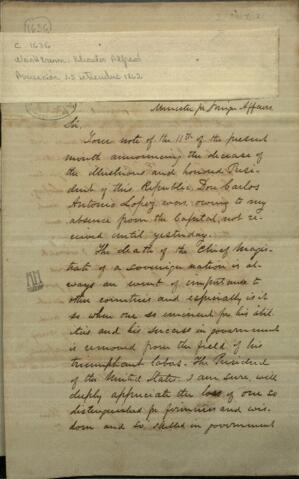 1636
C. 1636
Washburn, Charles Alfred
Asunción 25 setiembre 1862
Minister for Foreign Affairs
Sir,
Your note of the 11th of the present
month announcing the decease of
the illustrious and honored Presi-
dent of this Republic, Don Carlos
Antonio Lopez, was, owing to my
absence from the Capital, not re-
ceived until yesterday.
The death of the Chief Magis-
trate of a sovereign nation is al-
ways an event of importance to
other countries and especially is it
so when one so eminent for his abil-
ities and his success in government
is removed from the field of his
triumphant labors. The President
of the United States, I am sure, will
deeply appreciate the loss of one so
distinguished for firmness and wis-
dom and so skilled in government